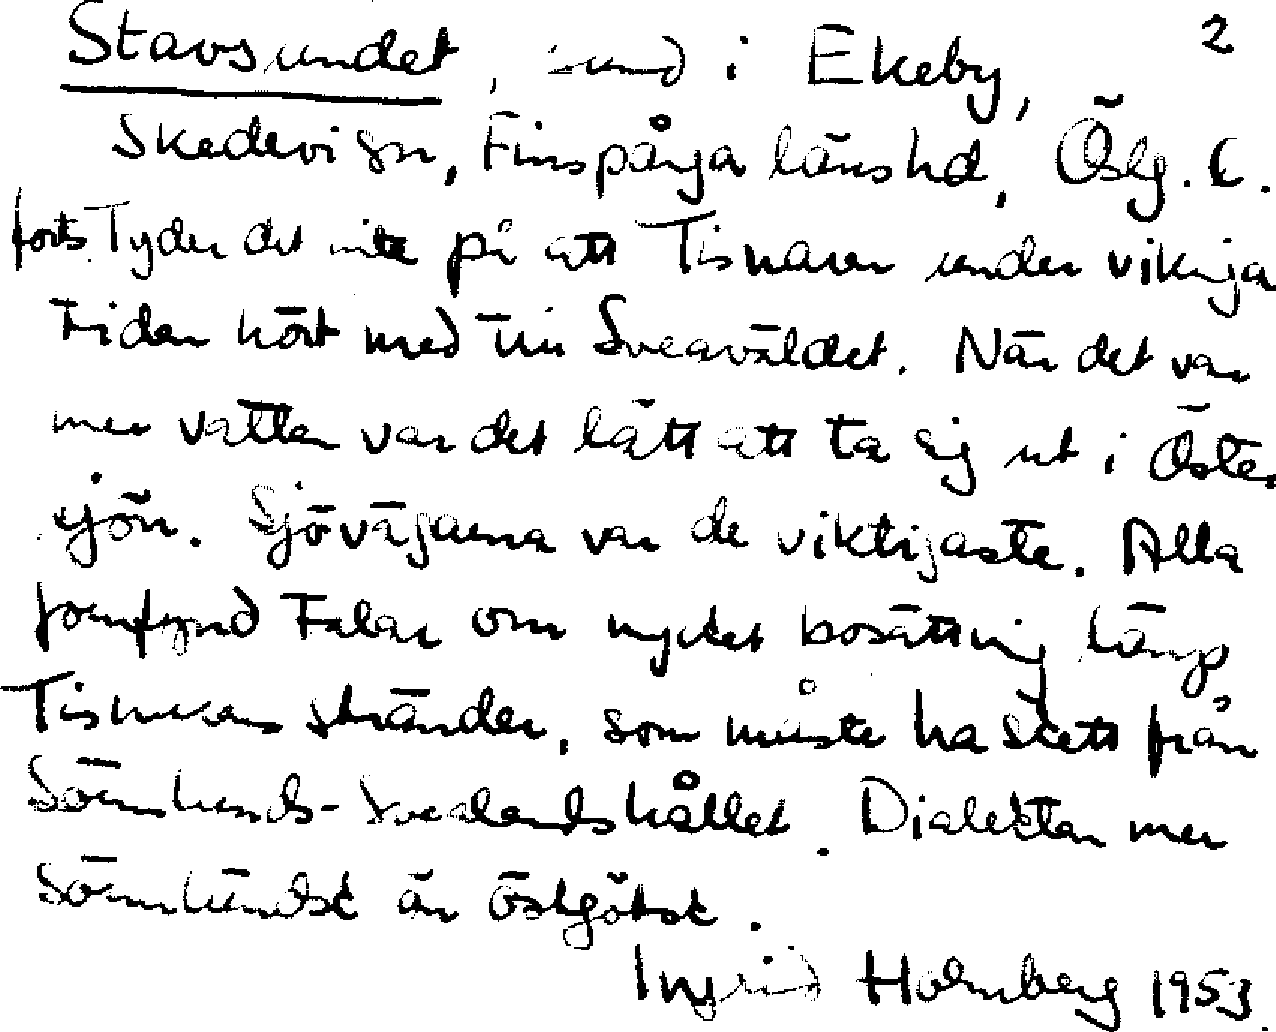 Stavsundet, sund i Ekeby, 2
Skedevi sn, Finspånga länshd, Östg. E.
forts. Tyder det inte på att Tisnaren under vikinga
tiden hört med till Sveaväldet. När det var
mer vatten var det lätt att ta sig ut i Öster
sjön. Sjövägarna var de viktigaste. Alla
fornfynd talar om mycket bosättning längs
Tisnarens stränder, som måste ha skett från
Sörmlands-Svealandshållet. Dialekten mer
sörmländsk än östgötsk.
Ingrid Holmberg 1953.